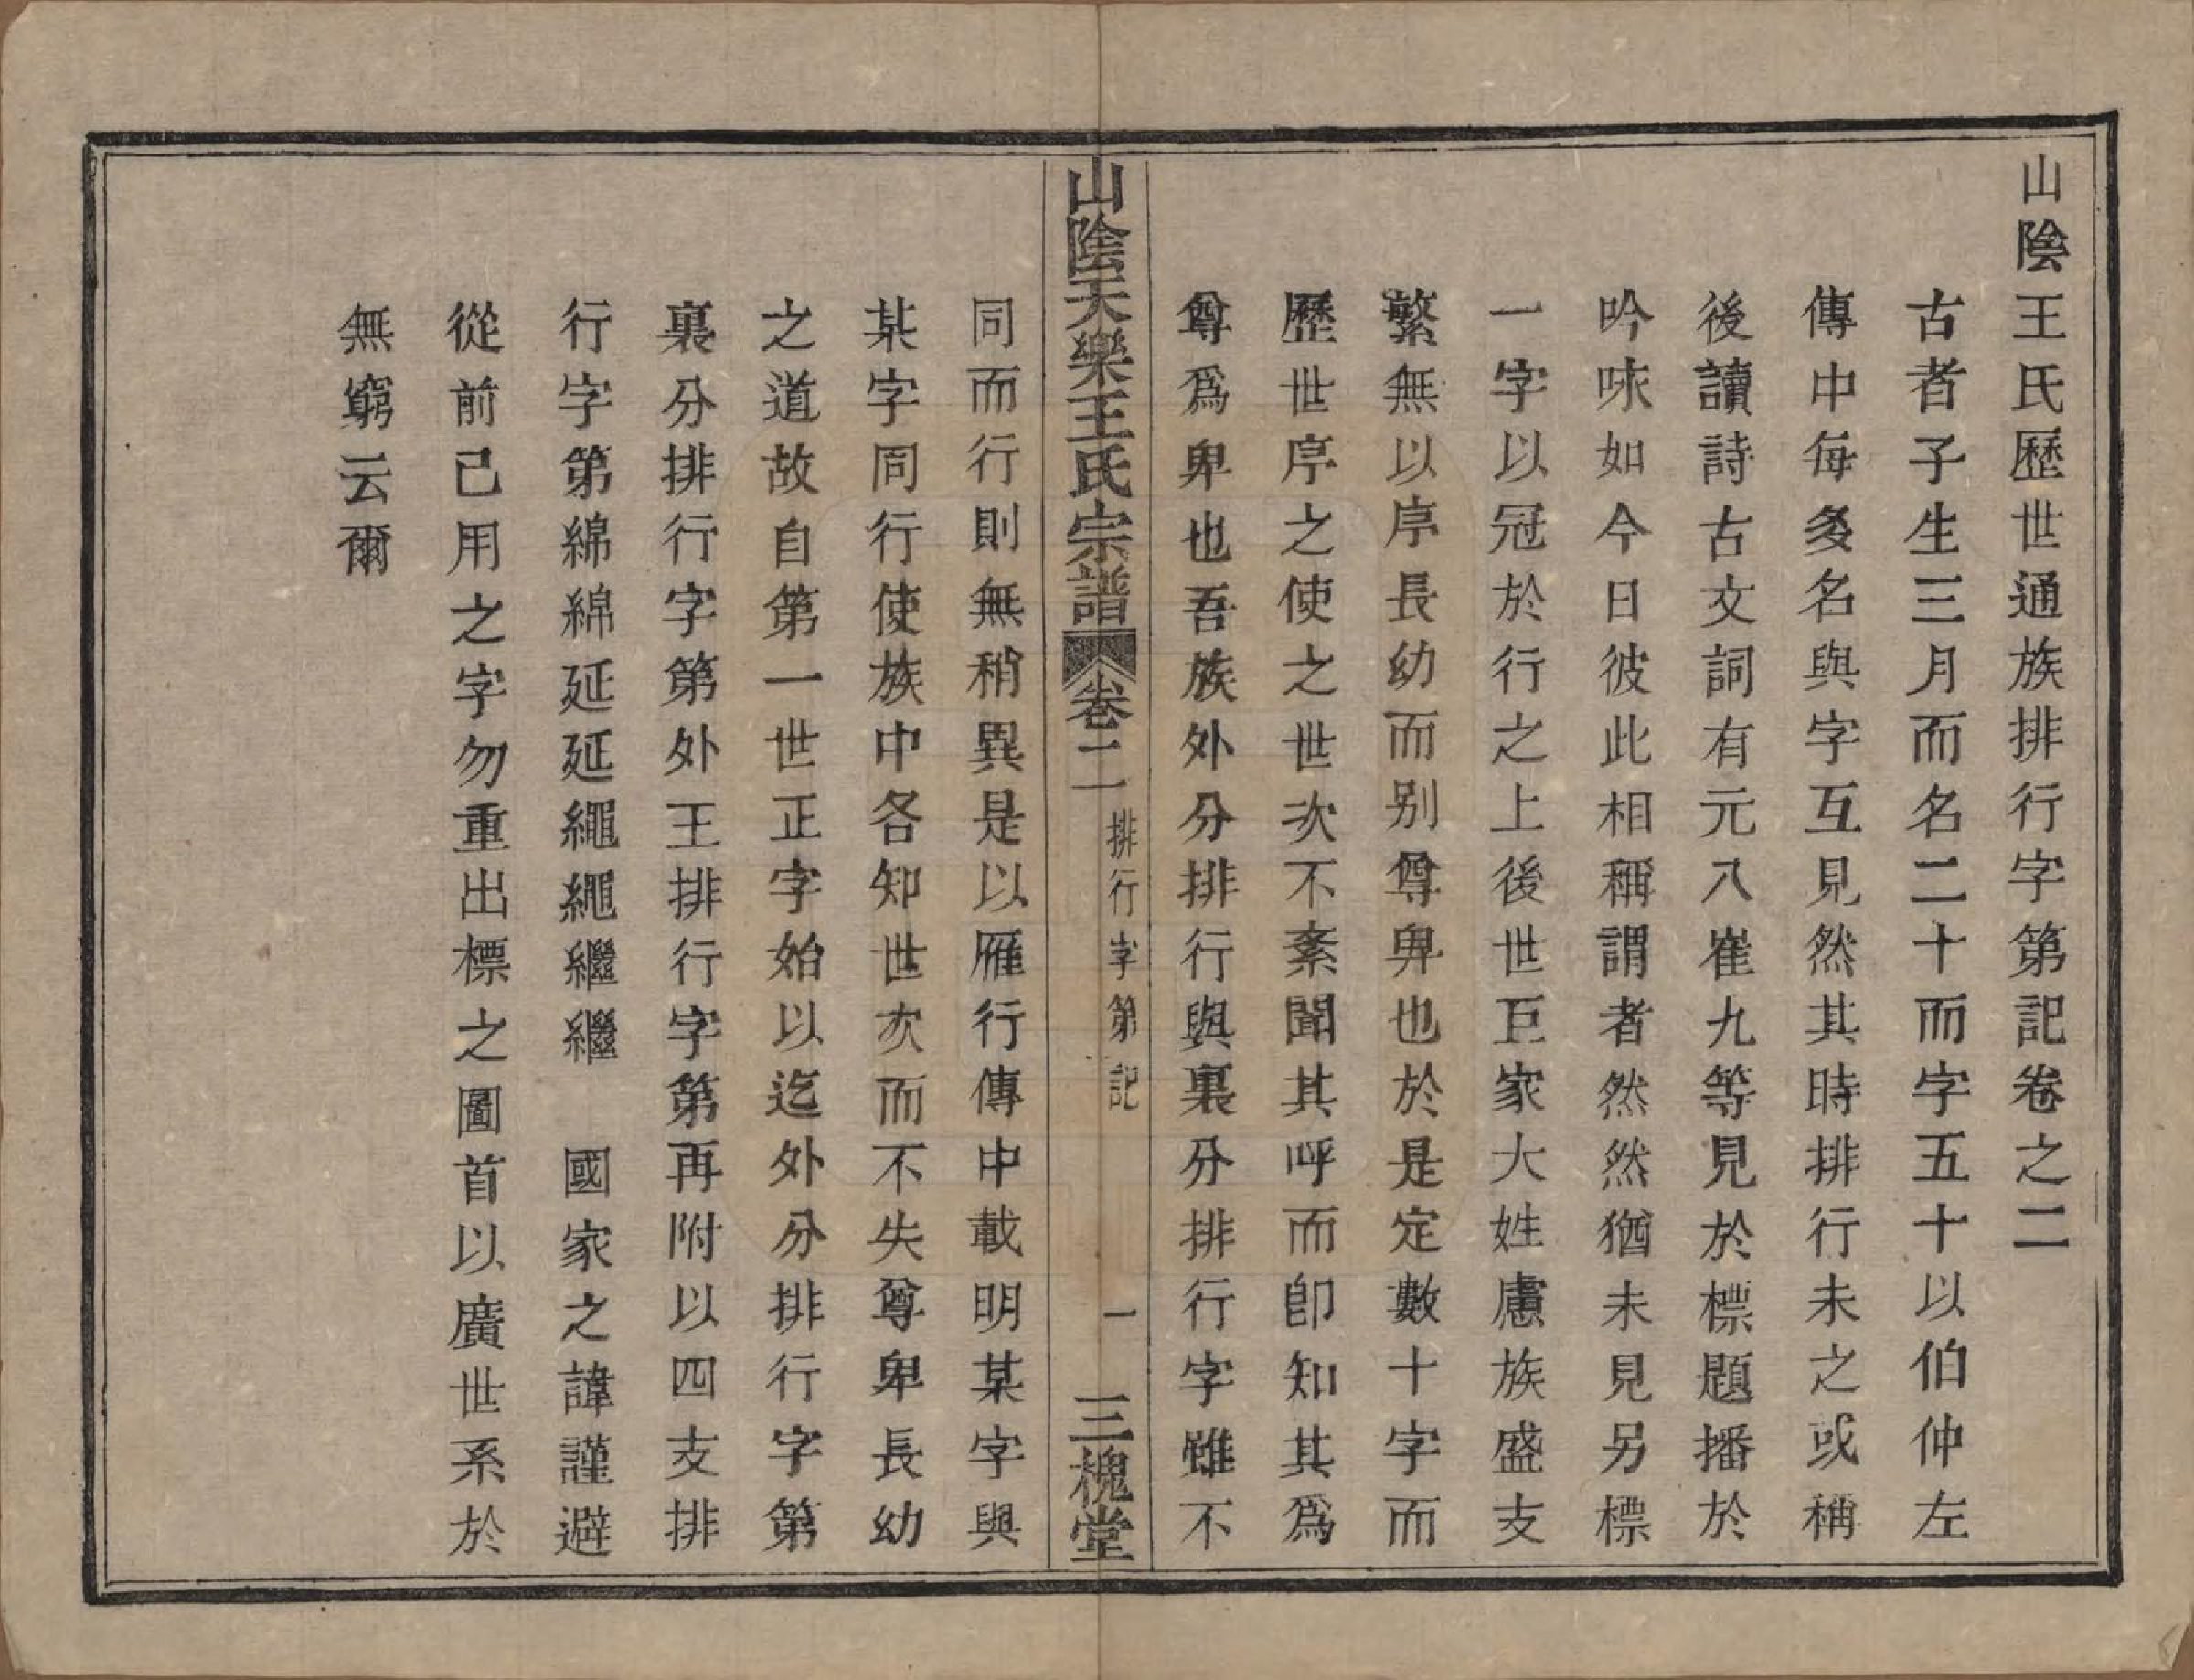 山陰王氏歷世通族排行字第記卷之二
古者子生三月而名二十而字五十以伯仲左
傳中每多名與字互見然其時排行未之或稱
後讀詩古文詞有元八崔九等見於標題播於
吟咏如今日彼此相稱謂者然然猶未見另標
一字以冠於行之上後世巨家大姓慮族盛支
繁無以序長幼而别尊卑也於是定數十字而
歷世序之使之世次不紊聞其呼而卽知其爲
尊爲卑也吾族外分排行與裏分排行字雖不
山陰天樂王氏宗譜
卷二
排行字第記
一
三槐堂
同而行則無稍異是以雁行傳中載明某字與
某字同行使族中各知世次而不失尊卑長幼
之道故自第一世正字始以迄外分排行字第
裏分排行字第外王排行字第再附以四支排
行字第綿綿延延繩繩繼繼 國家之諱謹避
從前己用之字勿重出標之圖首以廣世系於
無窮云爾